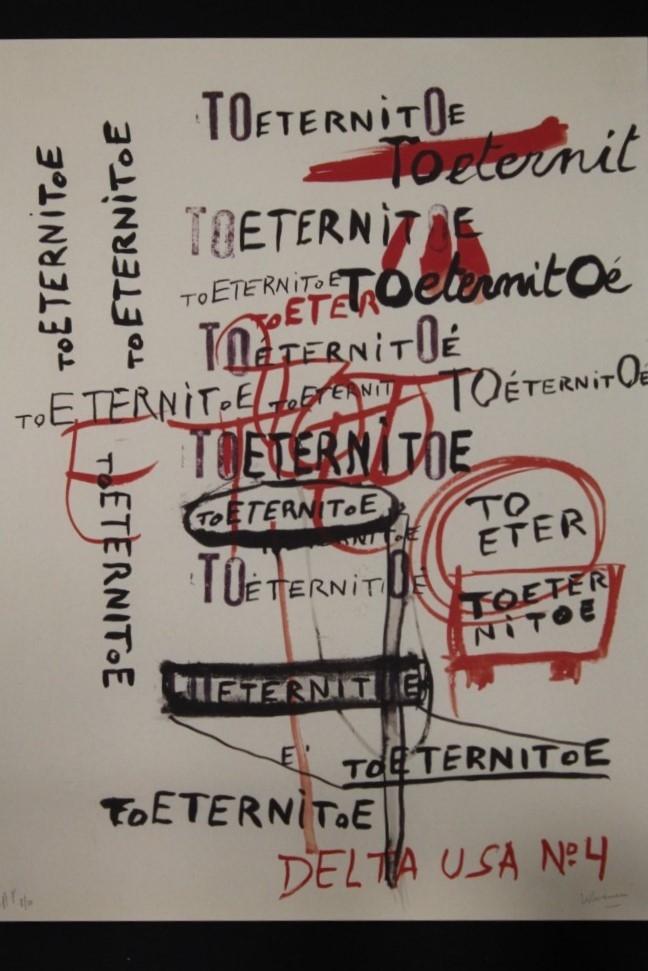 TOETERNITOE
Toeternit
TOETERNITOE
TOETERNITOE
TOETERNITOE
TOETERNITOE
TOETERNITOE
TOeternitOé
TOETER
TOÉTERNITOÉ
TOETERNITOE
TOETERNIT
TOÉTERNITOÉ
TOETERNITOE
TOETERNITOE
TOETERNITOE
TO
ETER
TOÉTERNITOÉ
TOETER
NITOE
ETERNIT E
E'
TOETERNITOE
TOETERNITOE
DELTA USA Nº4